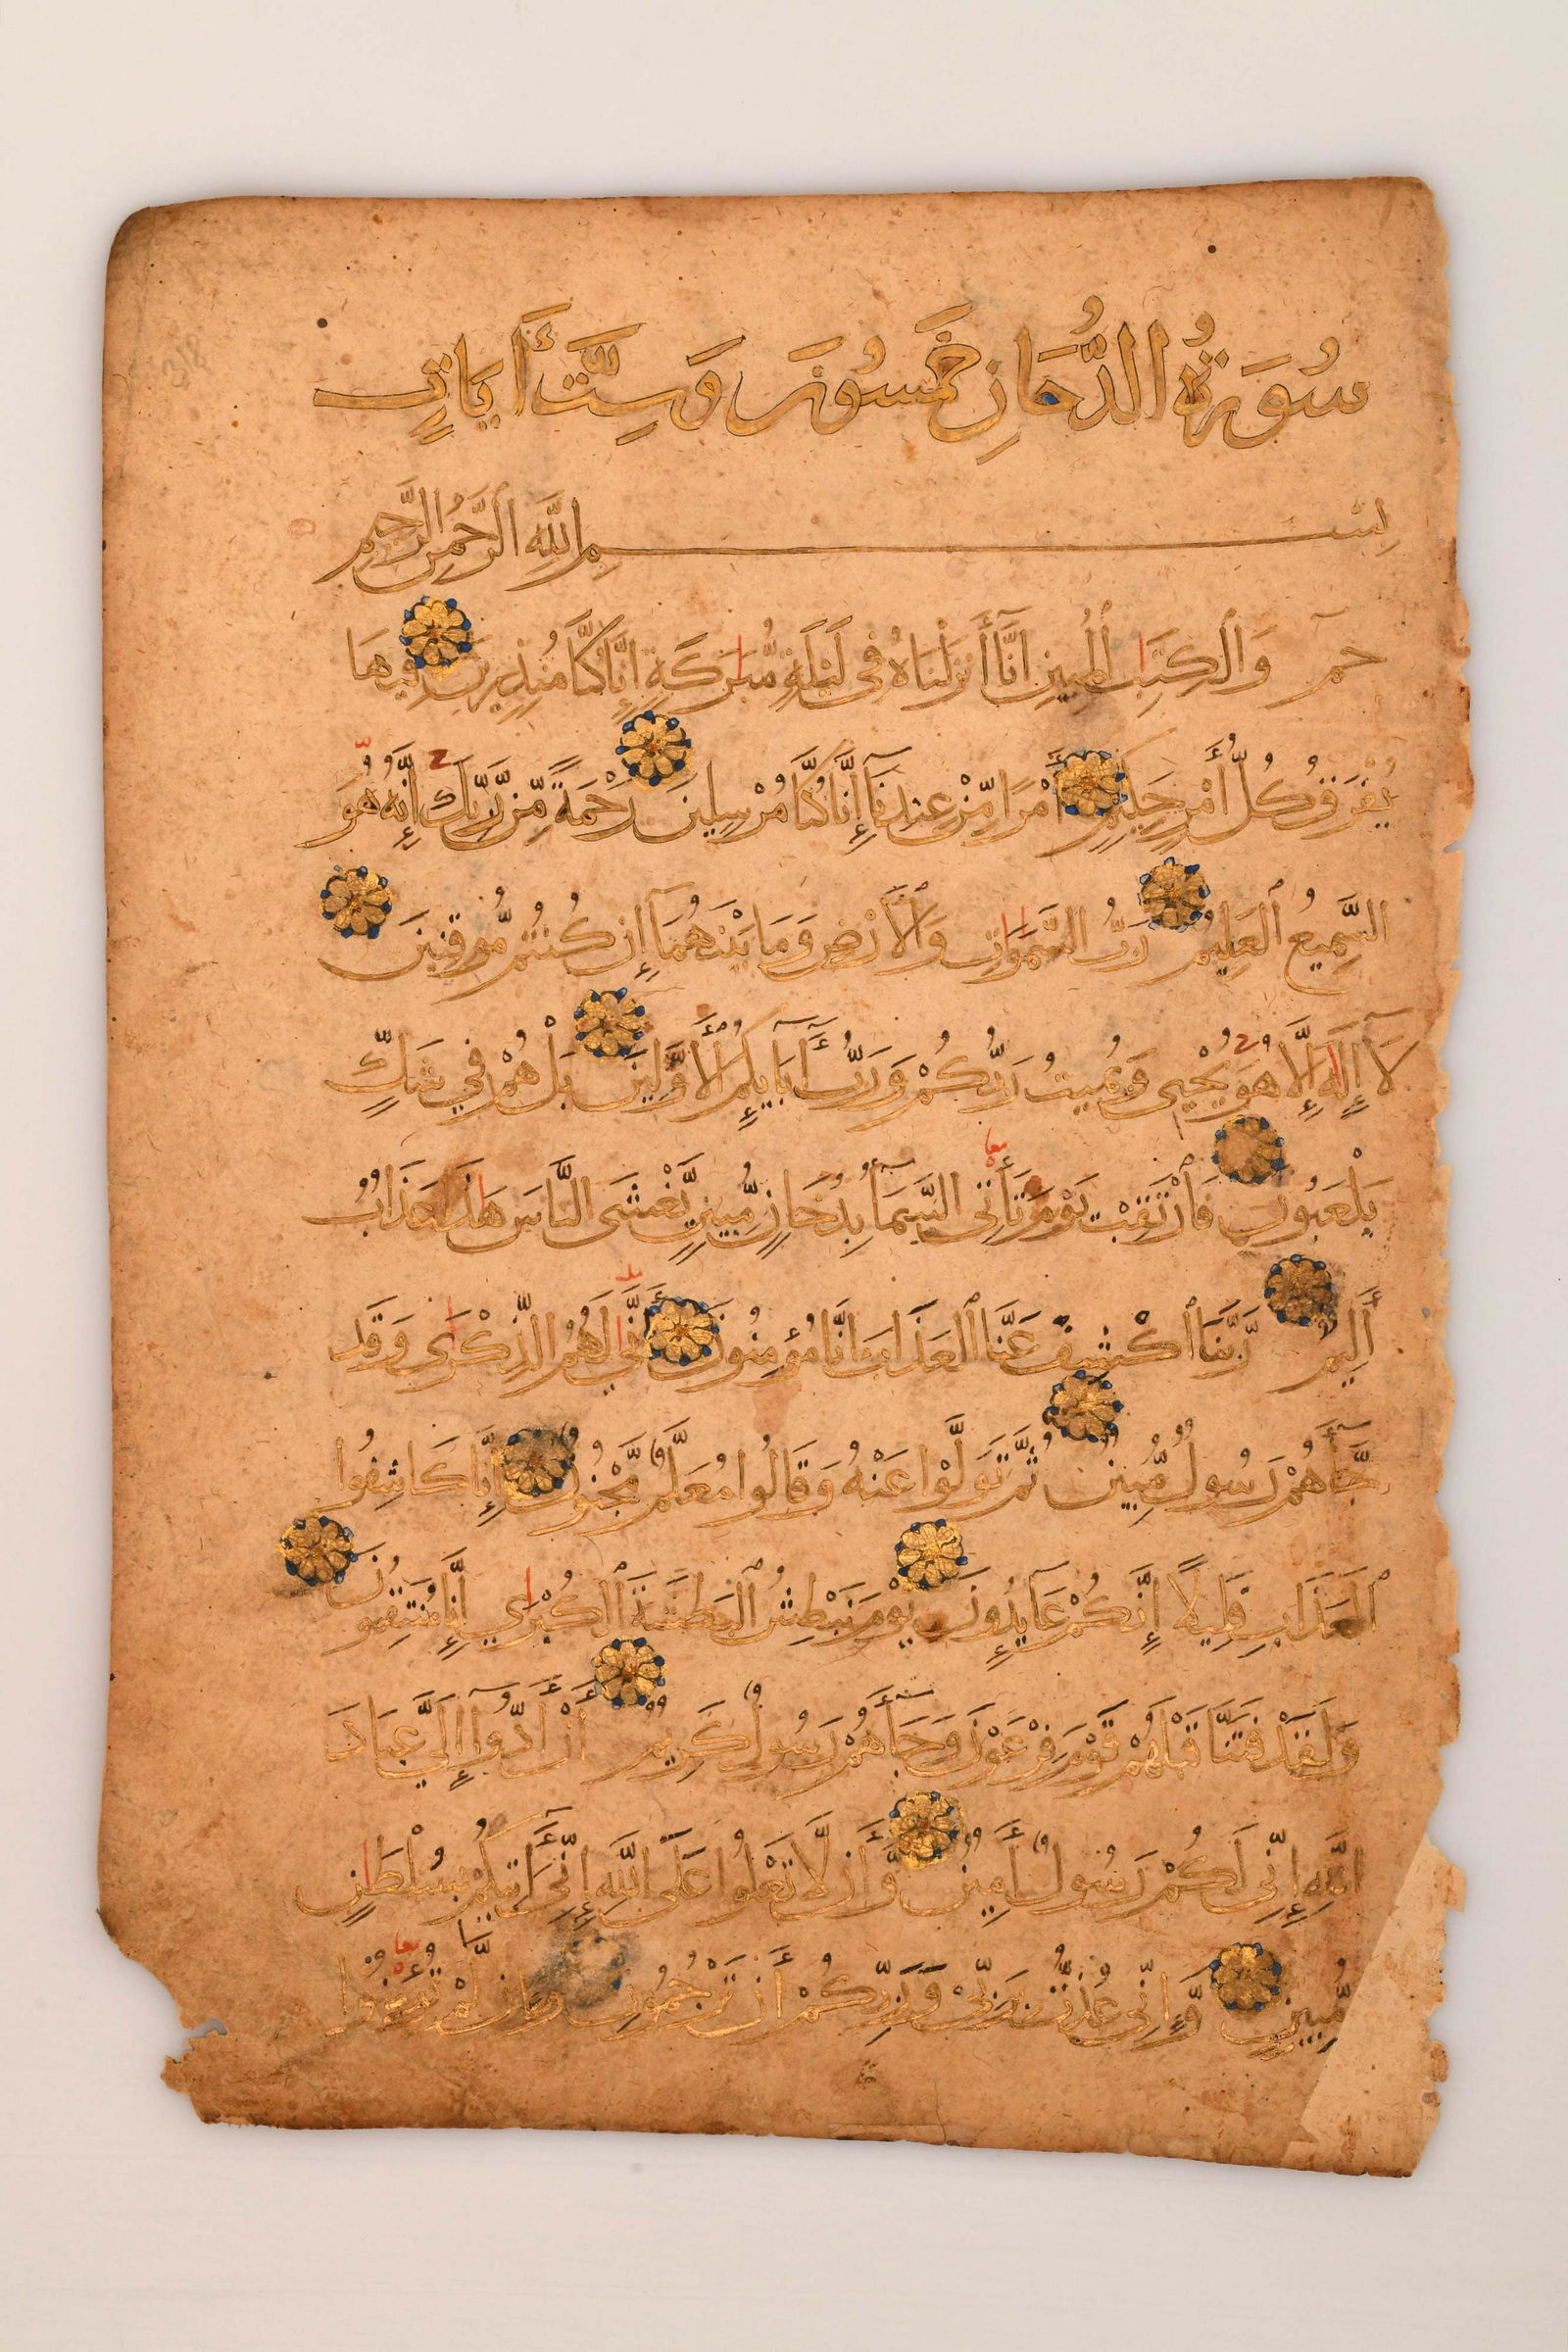 سُورَةُ الدُّخَانِ خَمْسُونَ وَسِتُّ أَيَاتٍ
بِسْمِ اللَّهِ الرَّحْمَنِ الرَّحِيمِ
حمٓ وَالْكِتَبِ الْمُبِينِ إِنَّا أَنزَلْنَاهُ فِي لَيْلَةٍ مُّبَرَكَةٍ إِنَّا كُنَّا مُنذِرِينَ فِيهَا
يُفْرَقُ كُلُّ أَمْرٍ حَكِيمٍ أَمْرًا مِّنْ عِندِنَآ إِنَّا كُنَّا مُرْسِلِينَ رَحْمَةً مِّن رَّبِّكَ إِنَّهُ هُوَ
السَّمِيعُ الْعَلِيمُ رَبُّ السَّمَوَاتِ وَالْأَرْضِ وَمَا بَيْنَهُمَآ إِن كُنتُم مُّوقِنِينَ
لَآ إِلَهَ إِلَّا هُوَ يُحْيِي وَيُمِيتُ رَبُّكُمْ وَرَبُّ أَبَآيِكُمُ الْأَوَّلِينَ بَلْ هُمْ فِي شَكٍّ
يَلْعَبُونَ فَارْتَقِبْ يَوْمَ تَأْتِي السَّمَآءُ بِدُخَانٍ مُّبِينٍ يَّغْشَى النَّاسَ هَذَا عَذَابٌ
أَلِيمٌ رَّبَّنَا اكْشِفْ عَنَّا الْعَذَابَ إِنَّا مُؤْمِنُونَ أَنَّى لَهُمُ الذِّكْرَى وَقَدْ
جَآءَهُمْ رَسُولٌ مُّبِينٌ ثُمَّ تَوَلَّوْا عَنْهُ وَقَالُوا مُعَلَّمٌ مَّجْنُونٌ إِنَّا كَاشِفُوا
الْعَذَابِ قَلِيلًا إِنَّكُمْ عَآيِدُونَ يَوْمَ نَبْطِشُ الْبَطْشَةَ الْكُبْرَى إِنَّا مُنتَقِمُونَ
وَلَقَدْ فَتَنَّا قَبْلَهُمْ قَوْمَ فِرْعَوْنَ وَجَآءَهُمْ رَسُولٌ كَرِيمٌ أَنْ أَدُّوآ إِلَيَّ عِبَادَ
اللَّهِ إِنِّي لَكُمْ رَسُولٌ أَمِينٌ وَّأَن لَّا تَعْلُوا عَلَى اللَّهِ إِنِّيٓ أَتِيكُم بِسُلْطَنٍ
مُّبِينٍ وَّإِنِّي عُذْتُ بِرَبِّي وَرَبِّكُمْ أَن تَرْجُمُونِ وَإِن لَّمْ تُؤْمِنُوا